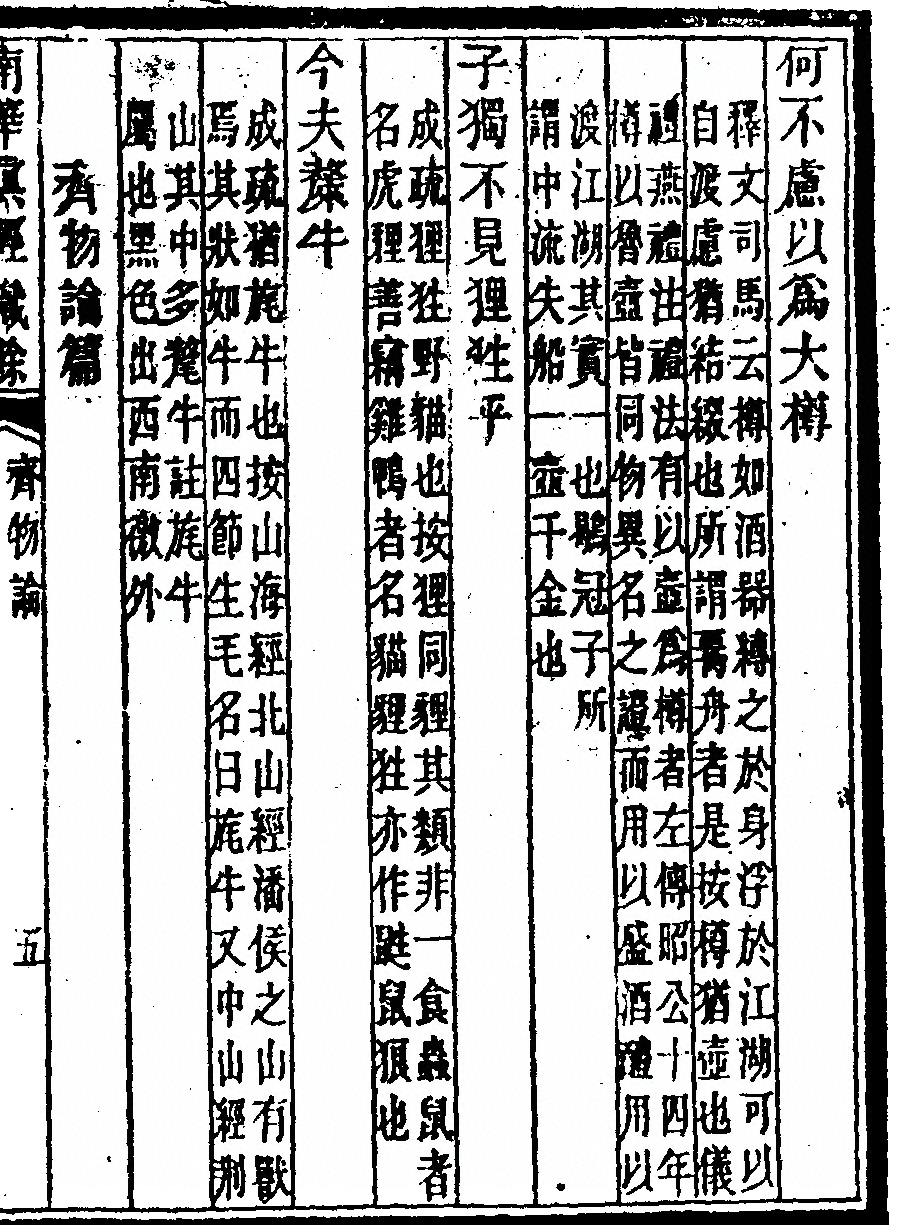 何不慮以為大樽
釋文司馬云樽如酒器縛之於身浮於江湖可以
自渡慮猶結綴也所謂腰舟者是按樽猶壺也儀
禮燕禮注禮法有以壺為樽者左傳昭公十四年
樽以魯壺皆同物異名之證而用以盛酒醴用以
渡江湖其實一也鶡冠子所
謂中流失船一壺千金也
子獨不見狸狌乎
成疏狸狌野貓也按狸同貍其類非一食蟲鼠者
名虎狸善竊雞鴨者名貓貍狌亦作鼪鼠狼也
今夫斄牛
成疏猶旄牛也按山海經北山經潘侯之山有獸
焉其狀如牛而四節生毛名曰旄牛又中山經荆
山其中多犛牛註旄牛
屬也黑色出西南徼外
齊物論篇
南華真經識餘
齊物論
五